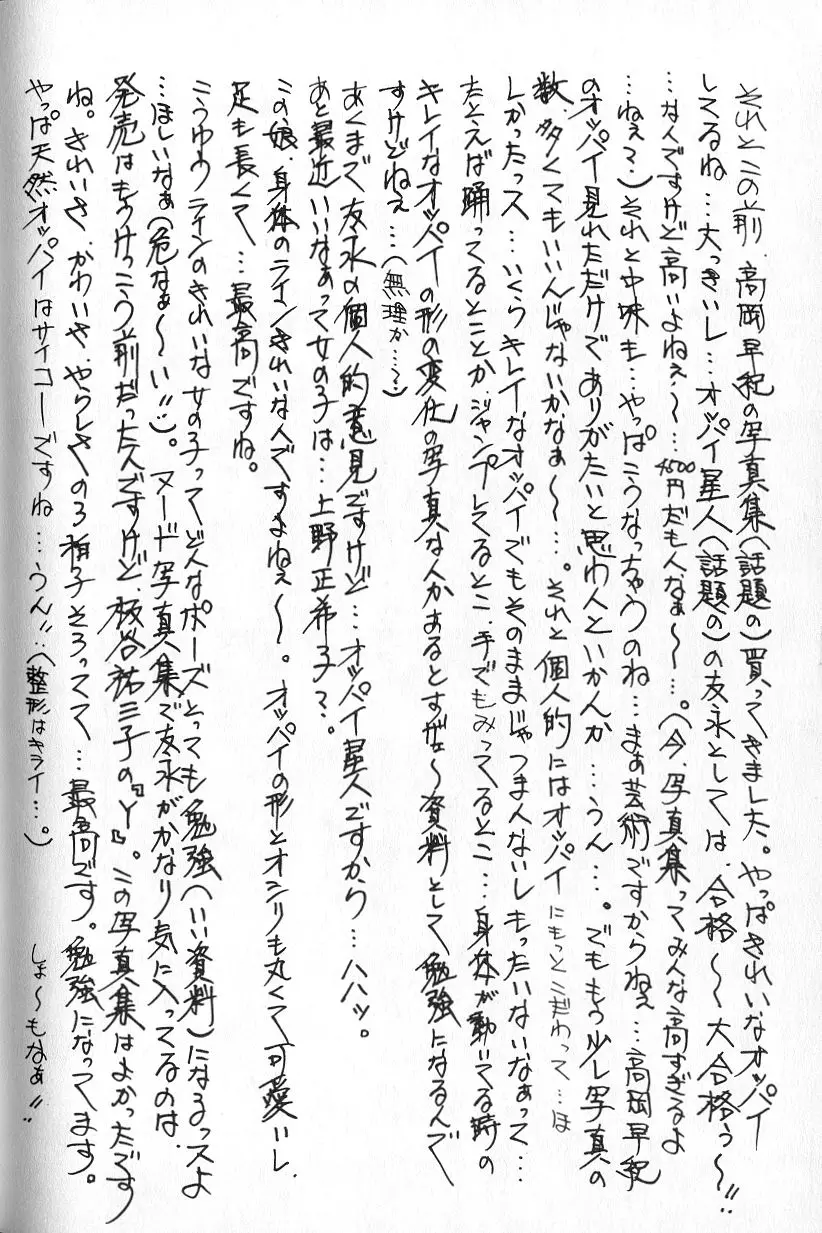 それとこの前、高岡早紀の写真集(話題の)買ってきました。やっぱきれいなオッパイ
してるね…大っきいし…オッパイ星人(話題の)の友永としては、合格〜〜大合格ぅ〜〜!!
…なんですけど高いよねぇ〜〜…4500円だもんなぁ〜〜…。(今、写真集ってみんな高すぎるよ
…ねぇ?)それと中味も…やっぱこうなっちゃうのね…まぁ芸術ですからねぇ…高岡早紀
のオッパイ見れただけでありがたいと思わんといかんか…うん…。でももう少し写真の
数、多くてもいいんじゃないかなぁ〜〜…。それと個人的にはオッパイにもっとこだわって…ほ
しかったっス…いくらキレイなオッパイでもそのままじゃつまんないしもったいないなぁって…
たとえば踊ってるとことか、ジャンプしてるとこ、手でもみってるとこ…身体が動いてる時の
キレイなオッパイの形の変化の写真なんかあるとすげェ〜資料として勉強になるんで
すけどねぇ…(無理か…?)
あくまで友永の個人的意見ですけど…オッパイ星人ですから…ハハッ。
あと最近いいなぁって女の子は…上野正希子?。
この娘、身体のラインきれいな人ですよねぇ〜〜。オッパイの形とオシリも丸くて可愛いし、
足も長くて…最高ですね。
こうゆうラインのきれいな女の子ってどんなポーズとっても勉強(いい資料)になるっスよ
…ほしいなぁ(危なぁ〜〜い!!)。ヌード写真集で友永がかなり気に入ってるのは、
発売はもうけっこう前だったんですけど、板谷祐三子の『Y』。この写真集はよかったです
ね。きれいさ、かわいさ、やらしさの3拍子そろってて…最高です。勉強になってます。
やっぱ天然オッパイはサイコーですね…うん!!(整形はキライ…。)しょ〜もなぁ!!